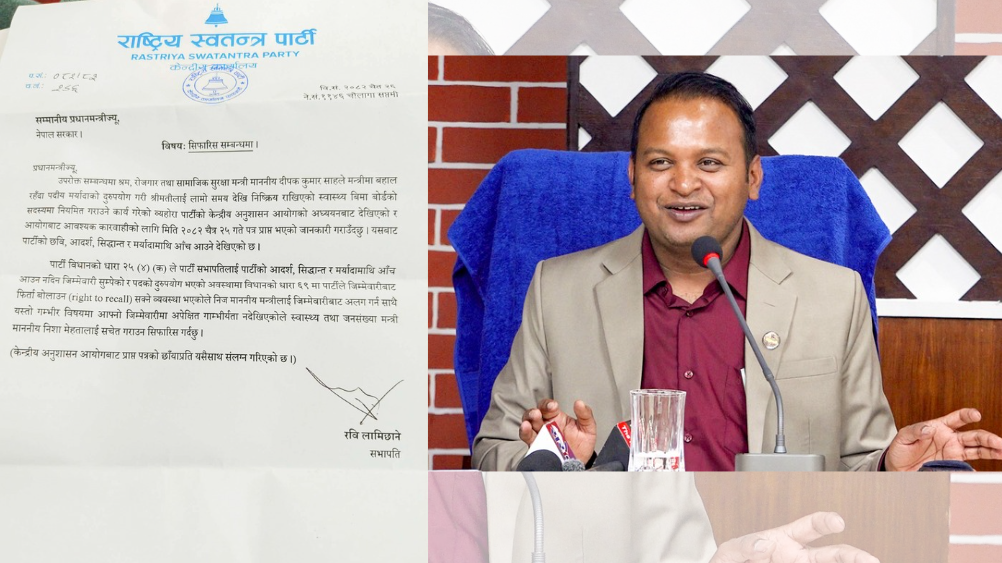 राष्ट्रिय स्वतन्त्र पार्टी
RASTRIYA SWATANTRA PARTY
केन्द्रीय कार्यालय
प.सं.: ०८२।८३
वि.सं. २०८२ चैत २६
ने.सं.११४६ चौलागा सप्तमी
सम्मानीय प्रधानमन्त्रीज्यू,
नेपाल सरकार।
विषय: सिफारिस सम्बन्धमा।
प्रधानमन्त्रीज्यू,
उपरोक्त सम्बन्धमा श्रम, रोजगार तथा सामाजिक सुरक्षा मन्त्री माननीय दीपक कुमार साहले मन्त्रीमा बहाल
रहँदा पदीय मर्यादाको दुरुपयोग गरी श्रीमतीलाई लामो समय देखि निष्क्रिय राखिएको स्वास्थ्य बिमा बोर्डको
सदस्यमा नियमित गराउने कार्य गरेको व्यहोरा पार्टीको केन्द्रीय अनुशासन आयोगको अध्ययनबाट देखिएको र
आयोगबाट आवश्यक कारवाहीको लागि मिति २०८२ चैत्र २५ गते पत्र प्राप्त भएको जानकारी गराउँदछु। यसबाट
पार्टीको छवि, आदर्श, सिद्धान्त र मर्यादामाथि आँच आउने देखिएको छ।
पार्टी विधानको धारा २५ (४) (क) ले पार्टी सभापतिलाई पार्टीको आदर्श, सिद्धान्त र मर्यादामाथि आँच
आउन नदिन जिम्मेवारी सुम्पेको र पदको दुरुपयोग भएको अवस्थामा विधानको धारा ६९ मा पार्टीले जिम्मेवारीबाट
फिर्ता बोलाउन (right to recall) सक्ने व्यवस्था भएकोले निज माननीय मन्त्रीलाई जिम्मेवारीबाट अलग गर्न साथै
यस्तो गम्भीर विषयमा आफ्नो जिम्मेवारीमा अपेक्षित गाम्भीर्यता नदेखिएकोले स्वास्थ्य तथा जनसंख्या मन्त्री
माननीय निशा मेहतालाई सचेत गराउन सिफारिस गर्दछु।
(केन्द्रीय अनुशासन आयोगबाट प्राप्त पत्रको छाँयाप्रति यसैसाथ संलग्न गरिएको छ।)
रवि लामिछाने
सभापति